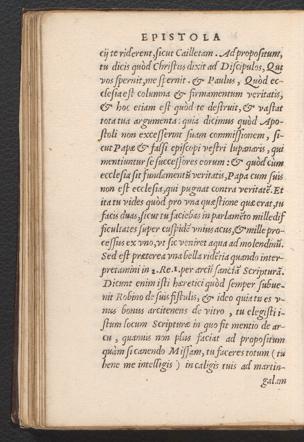 EPISTOLA
cij te riderent, sicut Cailletam. Ad propositum,
tu dicis quòd Christus dixit ad Discipulos, Qui
vos spernit, me spernit. & Paulus, Quòd ec-
clesia est columna & firmamentum veritatis,
& hoc etiam est quòd te destruit, & vastat
tota tua argumenta: quia dicimus quòd Apo-
stoli non excesserunt suam commissionem, si-
cut Papæ & falsi episcopi vestri lupanaris, qui
mentiuntur se successores eorum: & quòd cùm
ecclesia sit fundamentū veritatis, Papa cum suis
non est ecclesia, qui pugnat contra veritatē. Et
ita tu vides quòd pro vna quæstione quæ erat, tu
facis duas, sicut tu faciebas in parlamēto mille dif
ficultates super cuspidē vnius acus, & mille pro-
cessus ex vno, vt sic veniret aqua ad molendinū.
Sed est præterea vna bella rideria quando inter-
pretamini in 2. Re. 1. per arcū sanctā Scripturā.
Dicunt enim isti hæretici quòd semper subue-
nit Robino de suis fistulis, & ideo quia tu es v-
nus bonus arcitenens de vitro, tu elegisti i-
stum locum Scripturæ in quo fit mentio de ar-
cu, quamuis non plus faciat ad propositum
quàm si canendo Missam, tu faceres totum (tu
bene me intelligis) in caligis tuis ad martin-
galam